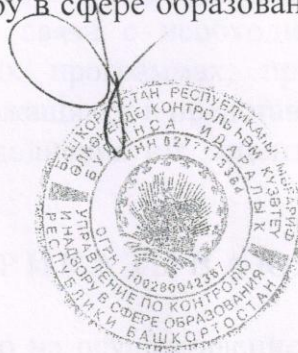 ру в сфере образован
БАШКОРТОСТАН РЕСПУБЛИКАҺЫ МӘҒАРИФ
ӨЛКӘҺЕНДӘ КОНТРОЛЬ ҺӘМ КҮҘӘТЕҮ
БУЙЫНСА ИДАРАЛЫҠ
УПРАВЛЕНИЕ ПО КОНТРОЛЮ
И НАДЗОРУ В СФЕРЕ ОБРАЗОВАНИЯ
РЕСПУБЛИКИ БАШКОРТОСТАН